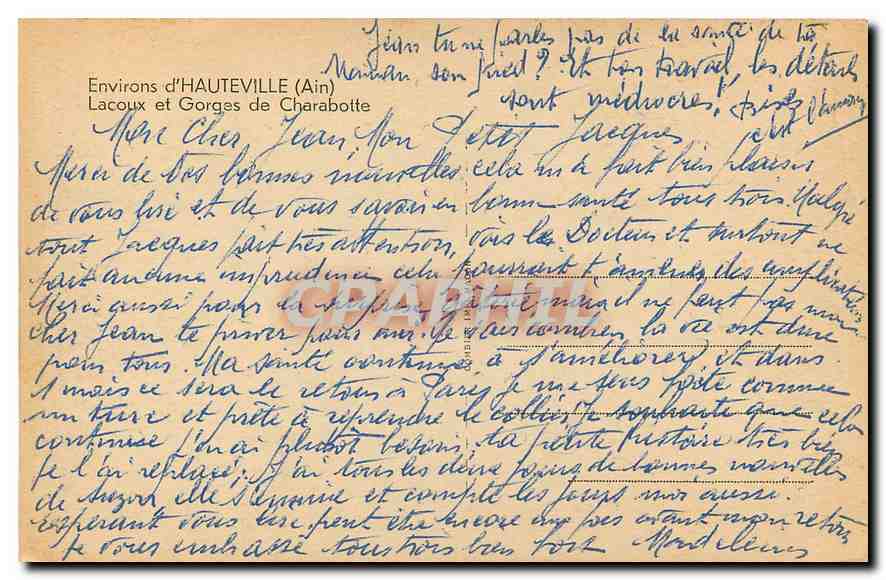 Jean tu ne parles pas de la santé de ta
Maman, son pied ? Et ton travail, les détails
sont médiocres !
Environs d'HAUTEVILLE (Ain)
Lacoux et Gorges de Charabotte
Mon Cher Jean, Mon Petit Jacques
Merci de vos bonnes nouvelles cela m'a fait bien plaisir
de vous lire et de vous savoir en bonne santé tous trois. Malgré
tout Jacques fait très attention, vois le Docteur et surtout ne
fait aucune imprudence cela pourrait t'amener des complications
Merci aussi pour la mais il ne faut pas mon
cher Jean te priver pour moi. Je sais combien la vie est dure
pour tous. Ma santé continue à s'améliorer et dans
1 mois ce sera le retour à Paris, je me sens forte comme
un turc et prête à reprendre le collier. Je souhaite que cela
continue j'en ai plutôt besoin. Ta petite histoire très bien
je l'ai replacé. J'ai tous les deux jours de bonnes nouvelles
de elle s'ennuie et compte les jours moi aussi.
Espérant vous lire peut être encore une fois avant mon retour
Je vous embrasse tous trois bien fort Madeleine
CPAPHIL
COMBIER IMP.